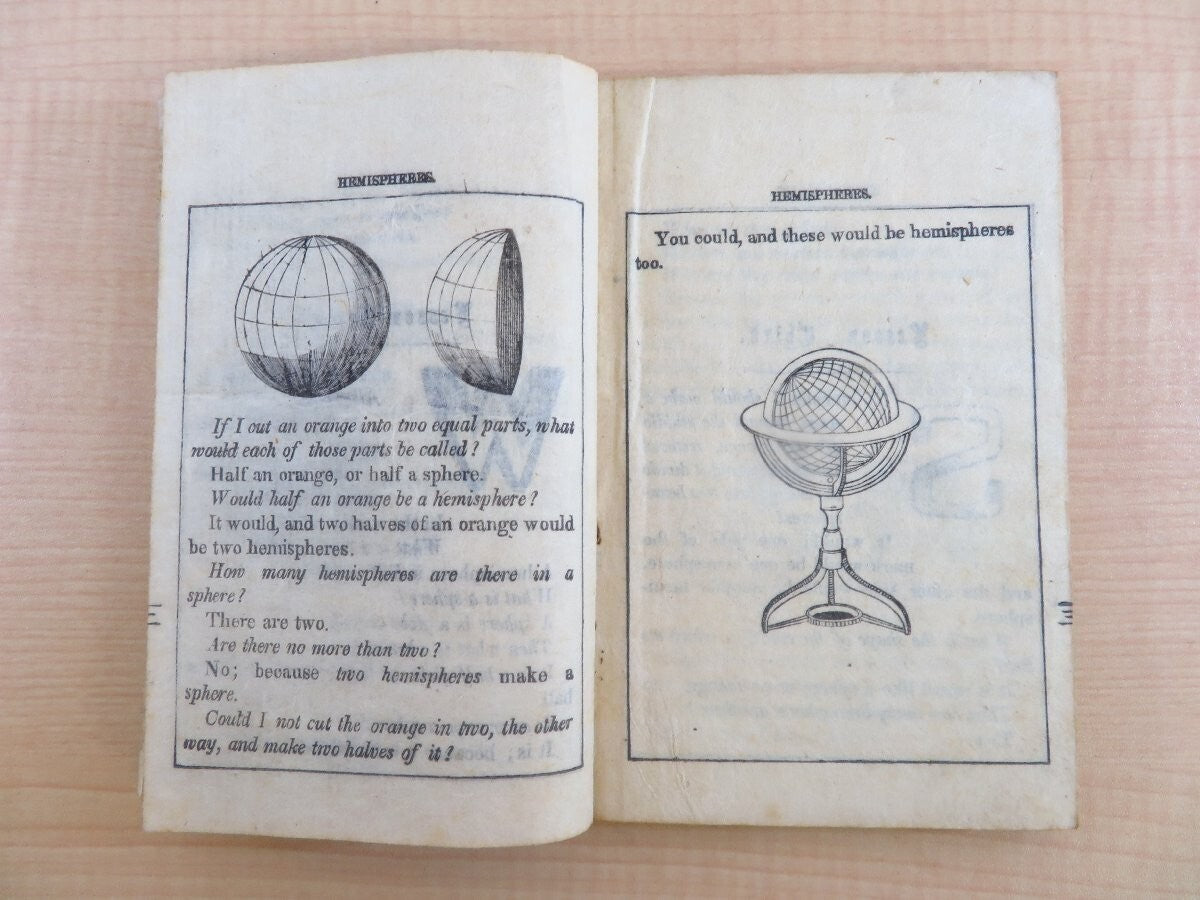 HEMISPHERES.
If I cut an orange into two equal parts, what
would each of those parts be called?
Half an orange, or half a sphere.
Would half an orange be a hemisphere?
It would, and two halves of an orange would
be two hemispheres.
How many hemispheres are there in a
sphere?
There are two.
Are there no more than two?
No; because two hemispheres make a
sphere.
Could I not cut the orange in two, the other
way, and make two halves of it?
HEMISPHERES.
You could, and these would be hemispheres
too.